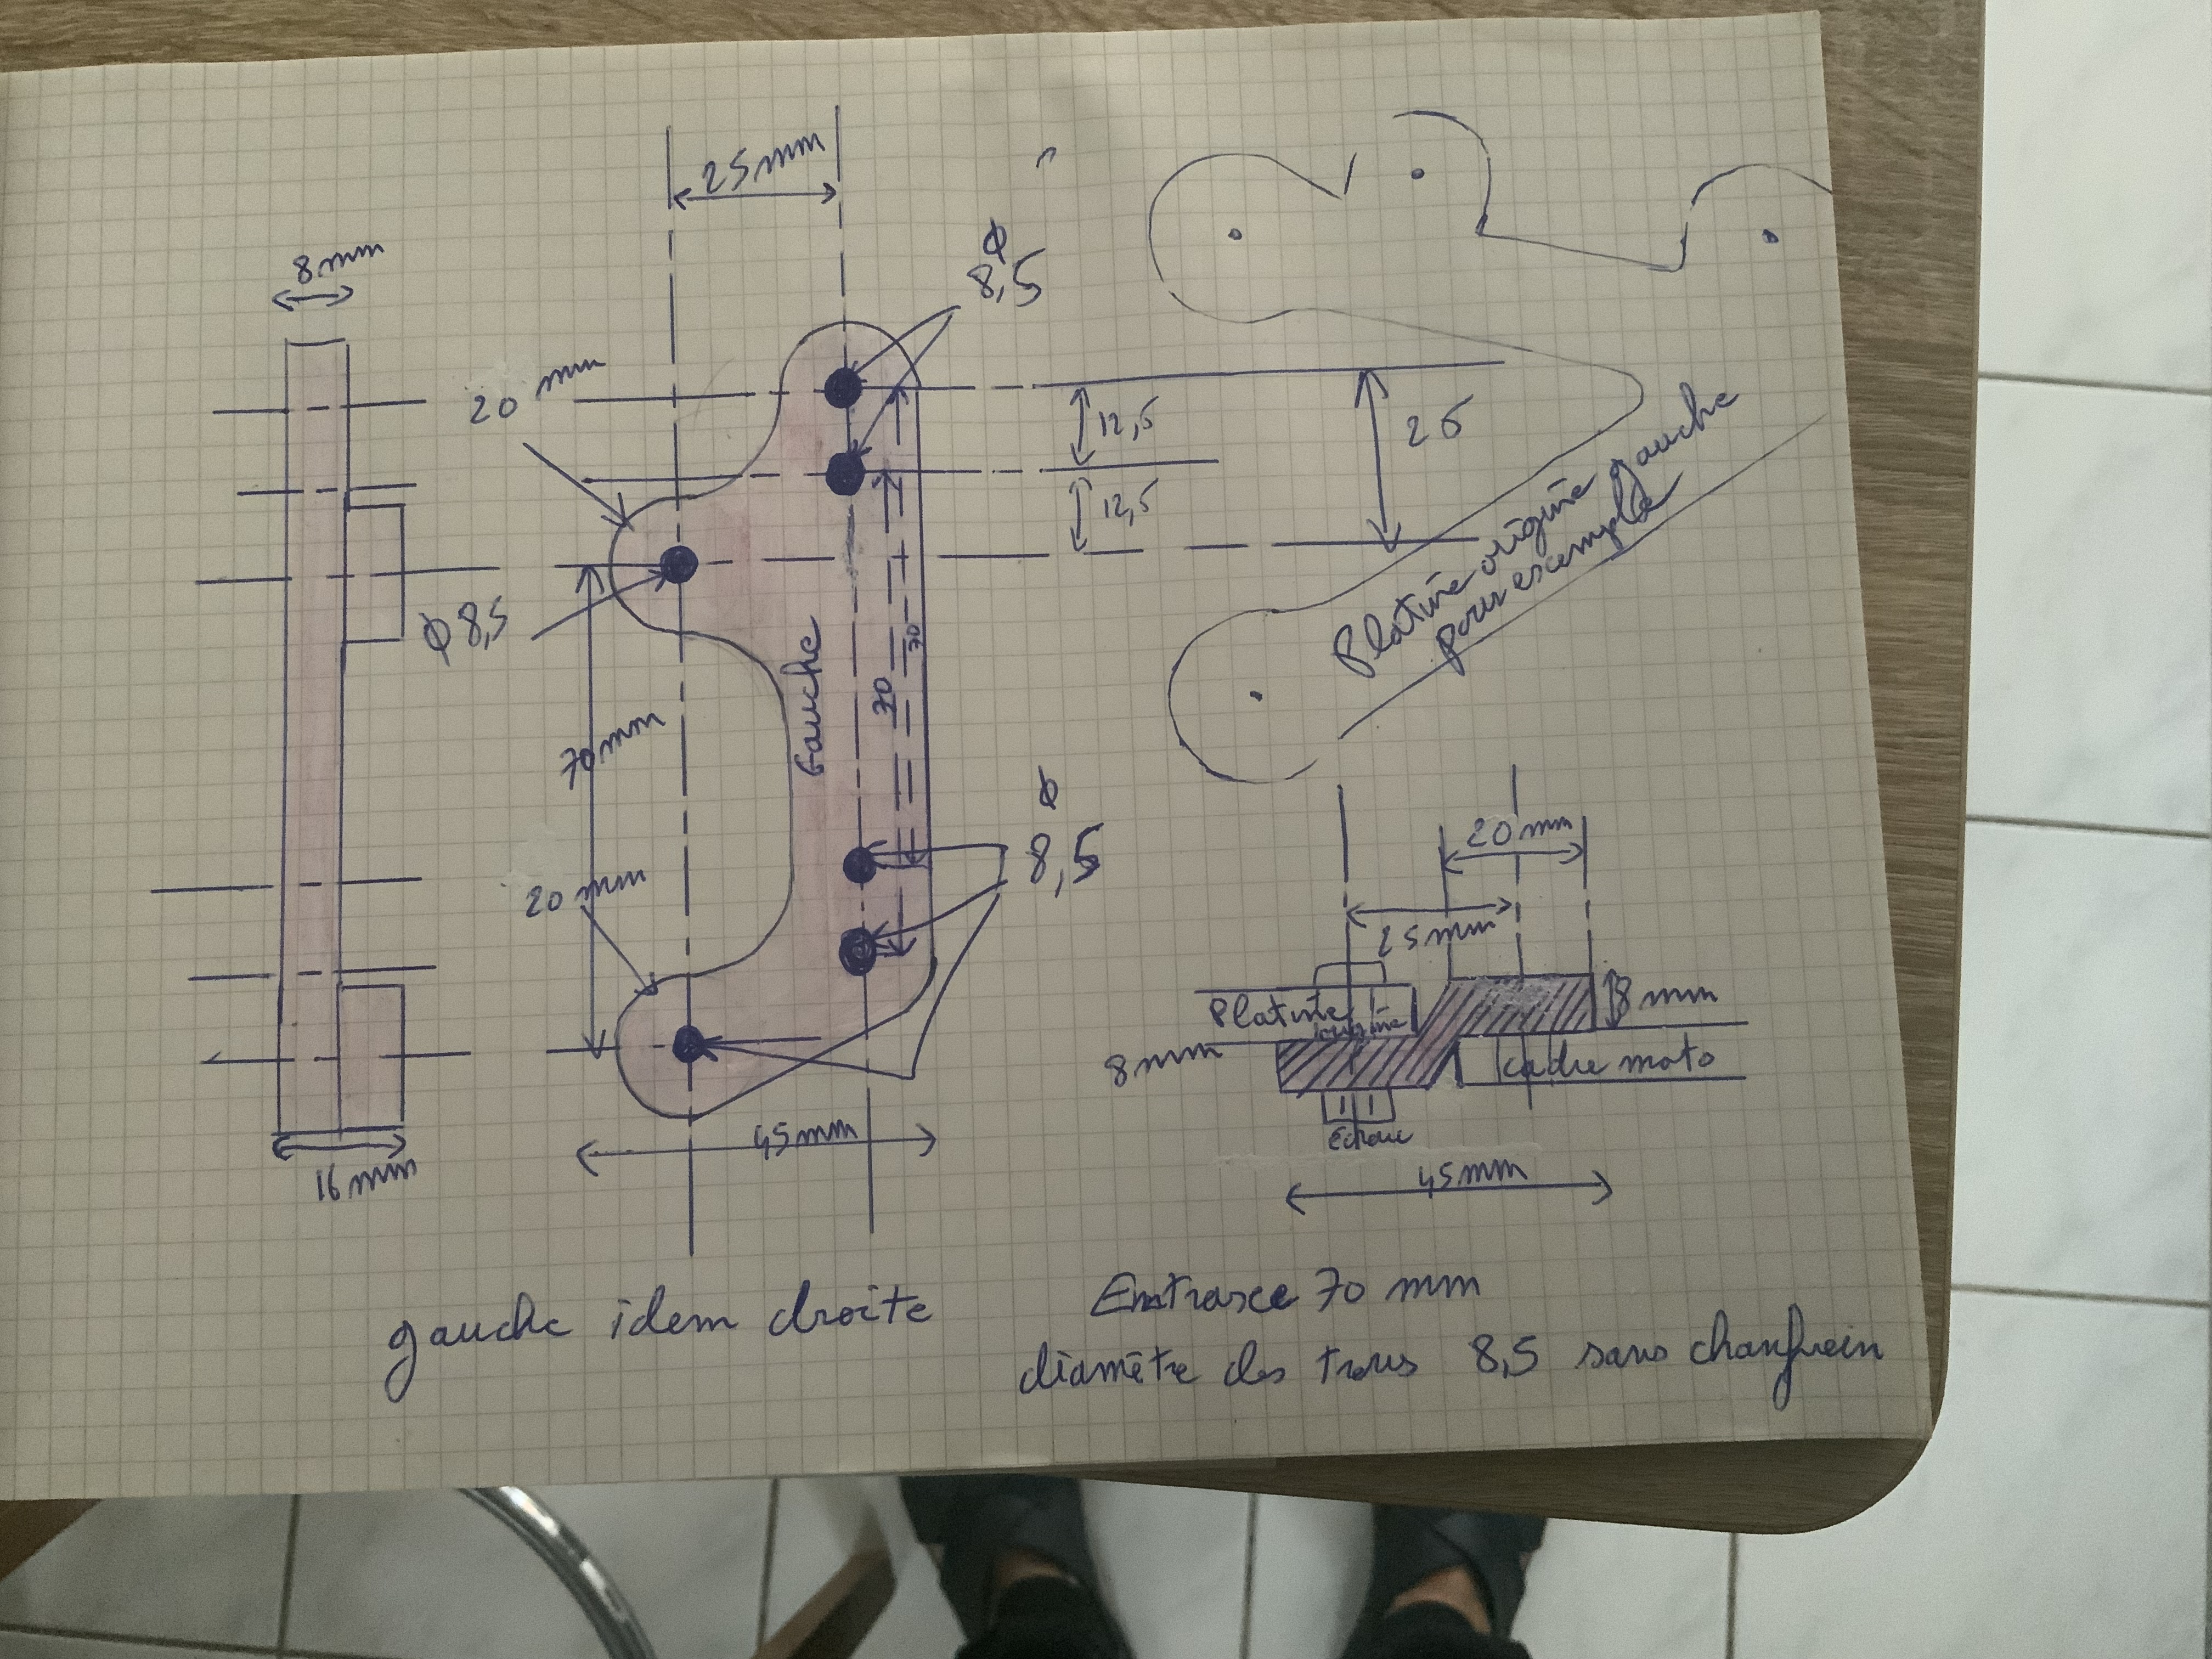 25 mm
ϕ
8,5
8 mm
20 mm
12,5
25
12,5
Platine origine gauche
pour exemple
ϕ 8,5
Gauche
70
70
70 mm
ϕ
8,5
20 mm
20 mm
25 mm
Platine
origine
8 mm
8 mm
cadre moto
écrou
45 mm
45 mm
16 mm
gauche idem droite
Entraxe 70 mm
diamètre des trous 8,5 sans chanfrein